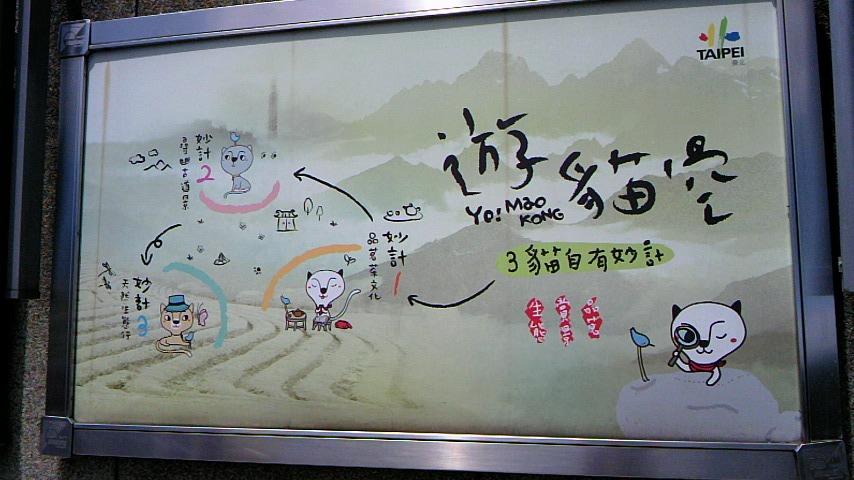 TAIPEI
臺北
遊貓空
Yo! Mao
KONG
3貓自有妙計
品茗
賞景
生態
妙計1
品茗茶文化
妙計2
尋幽古道景
妙計3
天然生態行